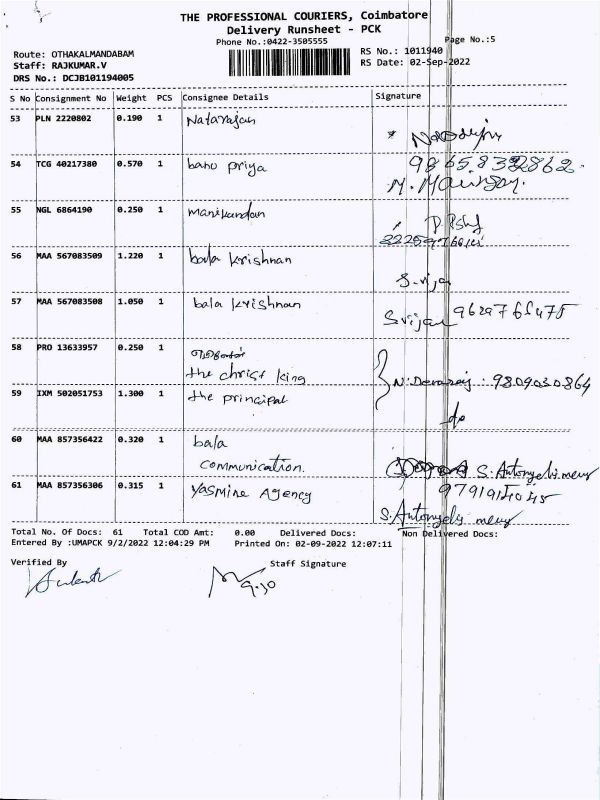 THE PROFESSIONAL COURIERS, Coimbatore
Delivery Runsheet - PCK
Phone No.:0422-3505555
Page No.:5
Route: OTHAKALMANDABAM
RS No.: 1011940
Staff: RAJKUMAR.V
RS Date: 02-Sep-2022
DRS No.: DCJB101194005
S No Consignment No Weight PCS Consignee Details Signature
53 PLN 2220802 0.190 1 Natarajan
54 TCG 40217380 0.570 1 banu priya
55 NGL 6864190 0.250 1 manikandan
56 MAA 567083509 1.220 1 bala krishnan
57 MAA 567083508 1.050 1 bala krishnan
Srijan 9629765475
58 PRO 13633957 0.250 1
the christ king
N. Devaraj : 9809030864
59 IXM 502051753 1.300 1 the principal
do
60 MAA 857356422 0.320 1 bala
communication.
S. Antonyelis mery
61 MAA 857356306 0.315 1 yasmine Agency
S. Antonyelis mery
Total No. Of Docs: 61 Total COD Amt: 0.00 Delivered Docs: Non Delivered Docs:
Entered By :UMAPCK 9/2/2022 12:04:29 PM Printed On: 02-09-2022 12:07:11
Verified By Staff Signature
9.30